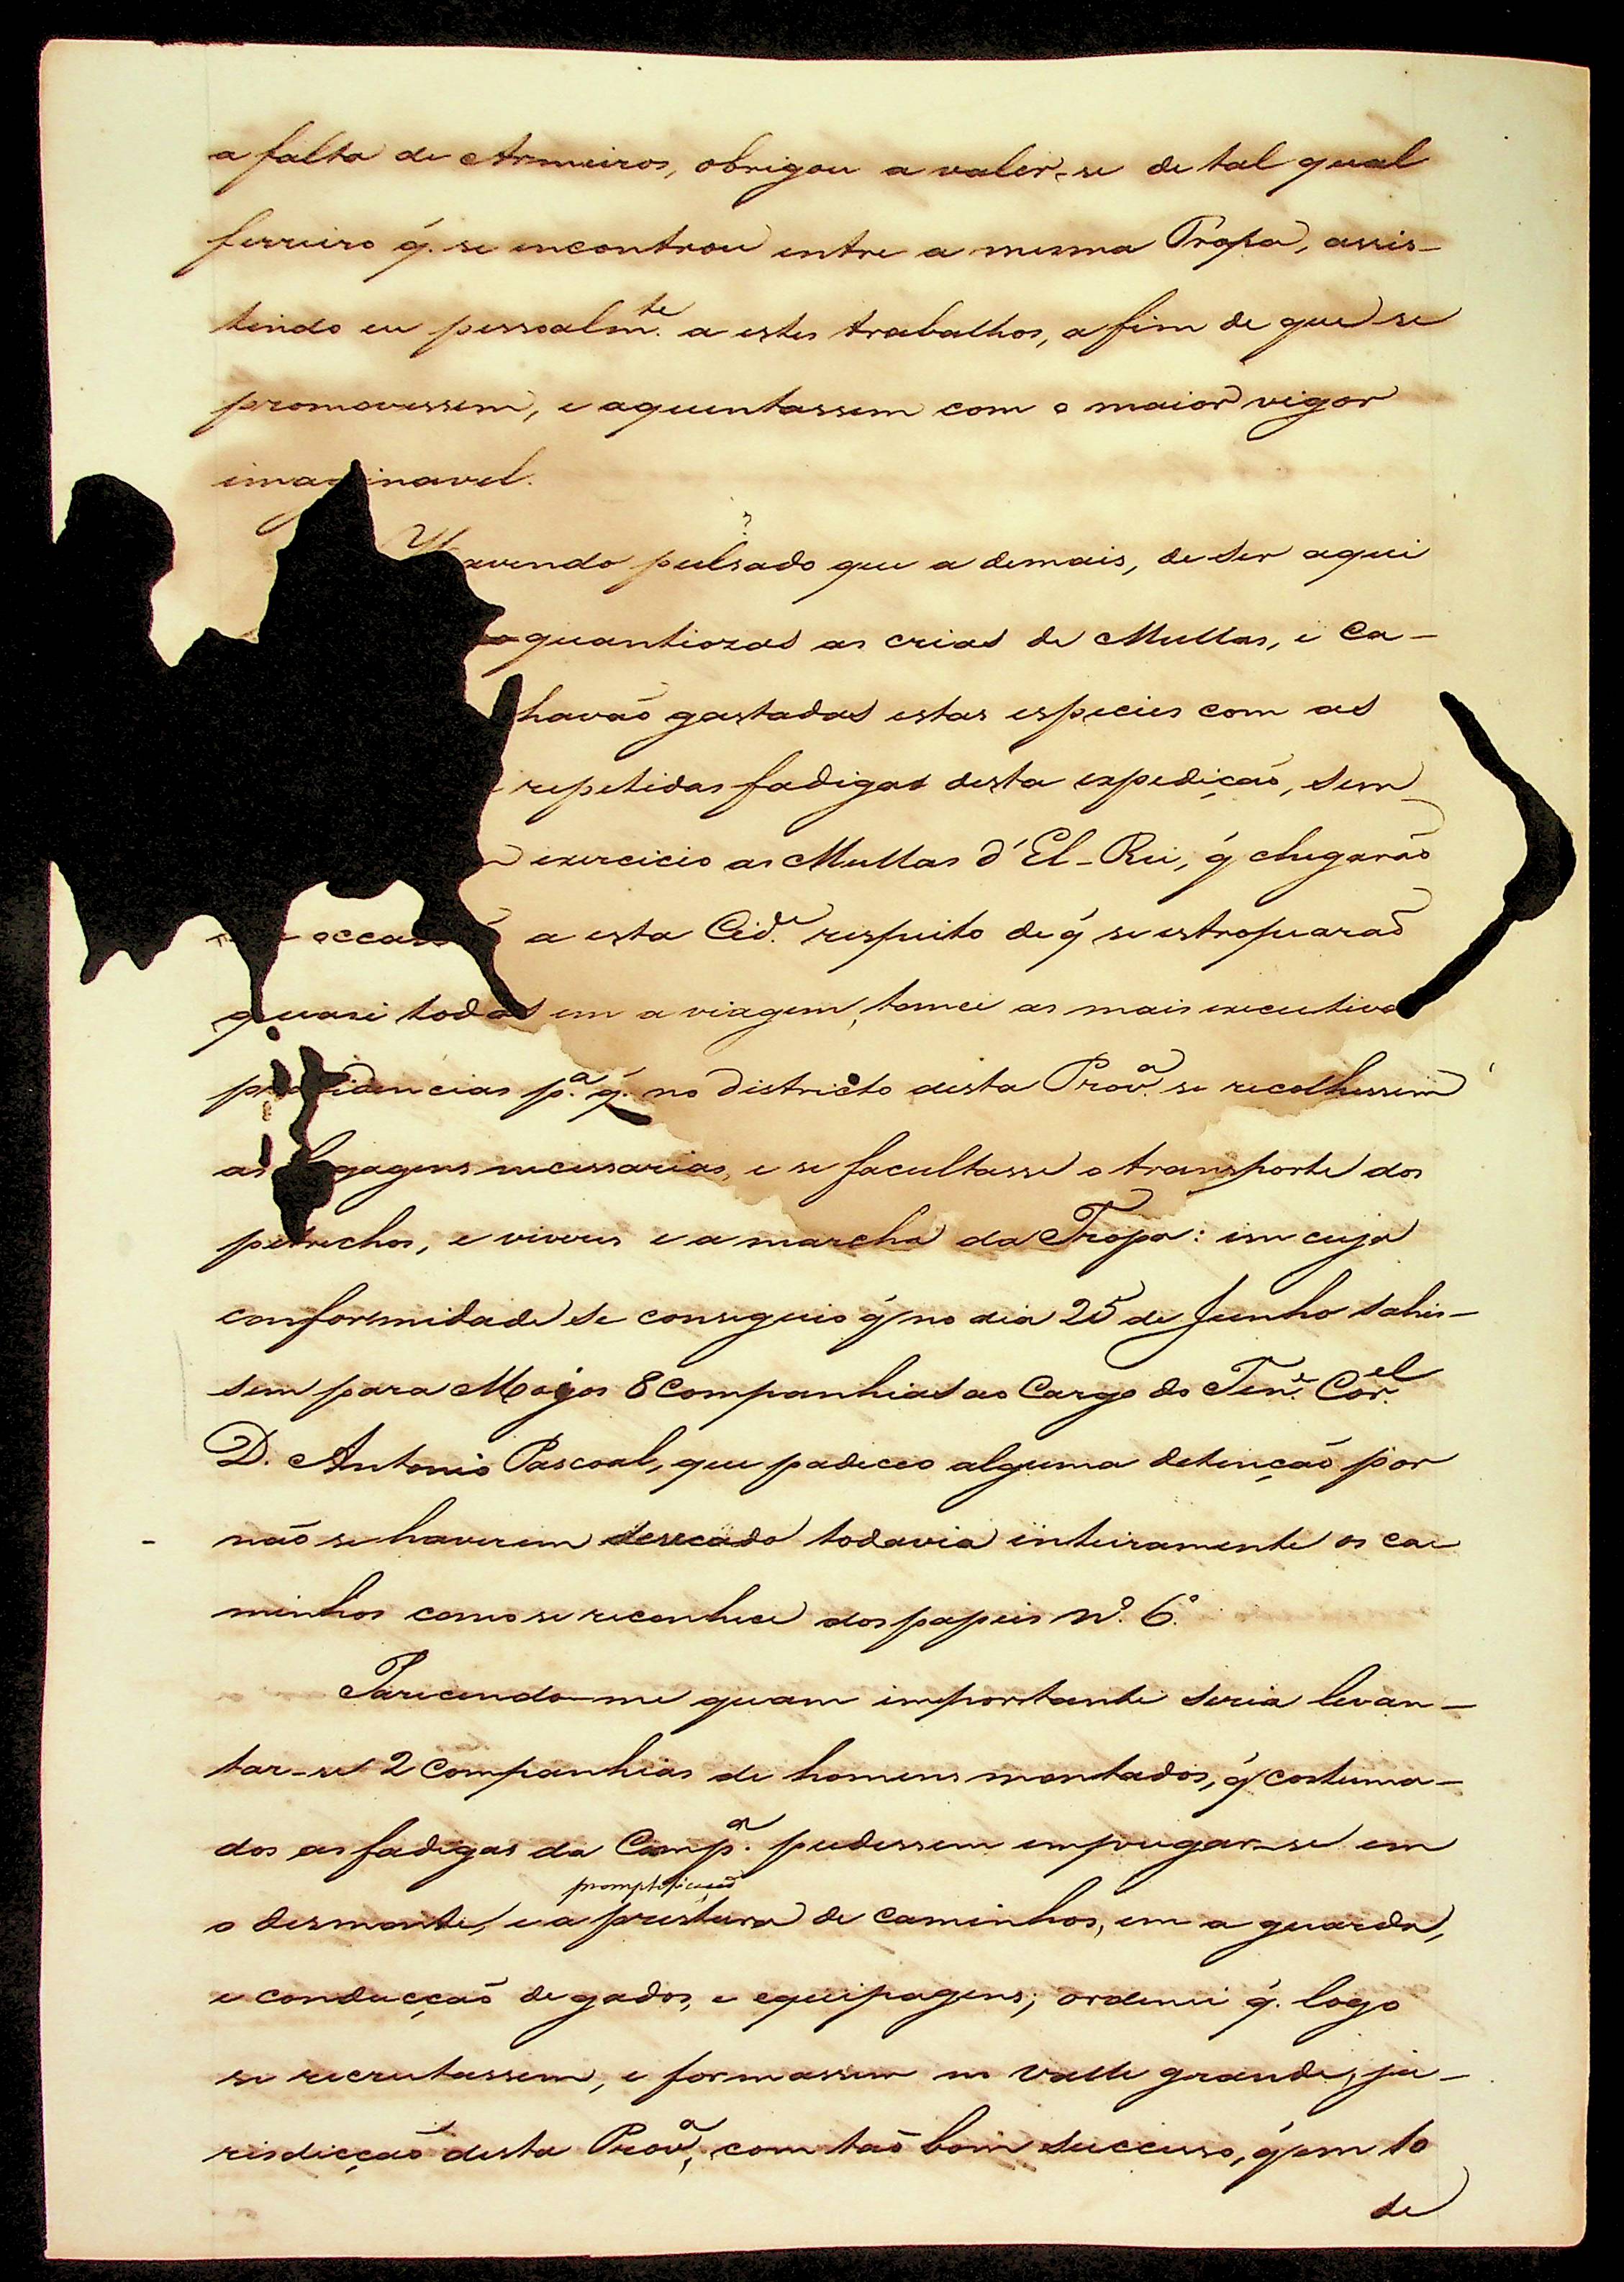 a falta de Armeiros, obrigou a valer-se de tal qual
ferreiro q̃. se encontrou entre a mesma Tropa, assis-
tindo eu pessoalm.te a estes trabalhos, a fim de que se
promovessem, e aquentassem com o maior vigor
imaginavel.
Havendo pulsado que a demais, de ser aqui
quantiozas as crias de Mullas, e Ca-
havaõ gastadas estas especies com as
repetidas fadigas desta expediçaõ, sem
exercicio as Mullas d'El-Rei, q̃ chegaraõ
occasiaõ a esta Cid.e respeito de q̃ se estropearaõ
quasi todas em a viagem, tomei as mais executivas
providencias p.a q̃. no districto desta Prov.a se recolhessem
as bagagens necessarias, e se facultasse o transporte dos
petrechos, e viveres e a marcha da Tropa: em cuja
conformidade se conseguio q̃ no dia 25 de Junho sahis-
sem para Mojos 8 Companhias ao Cargo do Ten.e Cor.el
D. Antonio Pascoal, que padeceo alguma detençaõ por
naõ se haverem desecado todavia inteiramente os ca-
minhos como se reconhece dos papeis Nº. 6º.
Parecendo-me quam importante seria levan-
tar-se 2 Companhias de homens montados, q̃ costuma-
dos as fadigas da Camp.a pudessem empregar-se em
promptificaçaõ
o desmonte, e a prestura de caminhos, em a guarda,
e conducçaõ de gados, e equipagens; ordenei q̃. logo
se recrutassem, e formassem no Valle grande, ju-
risdicçaõ desta Prov.a, com taõ bom successo, q̃ em 10
de